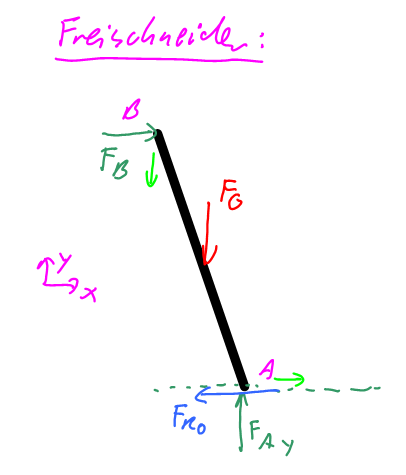 Freischneiden:
B
F_B
F_G
y
x
A
F_R0
F_Ay